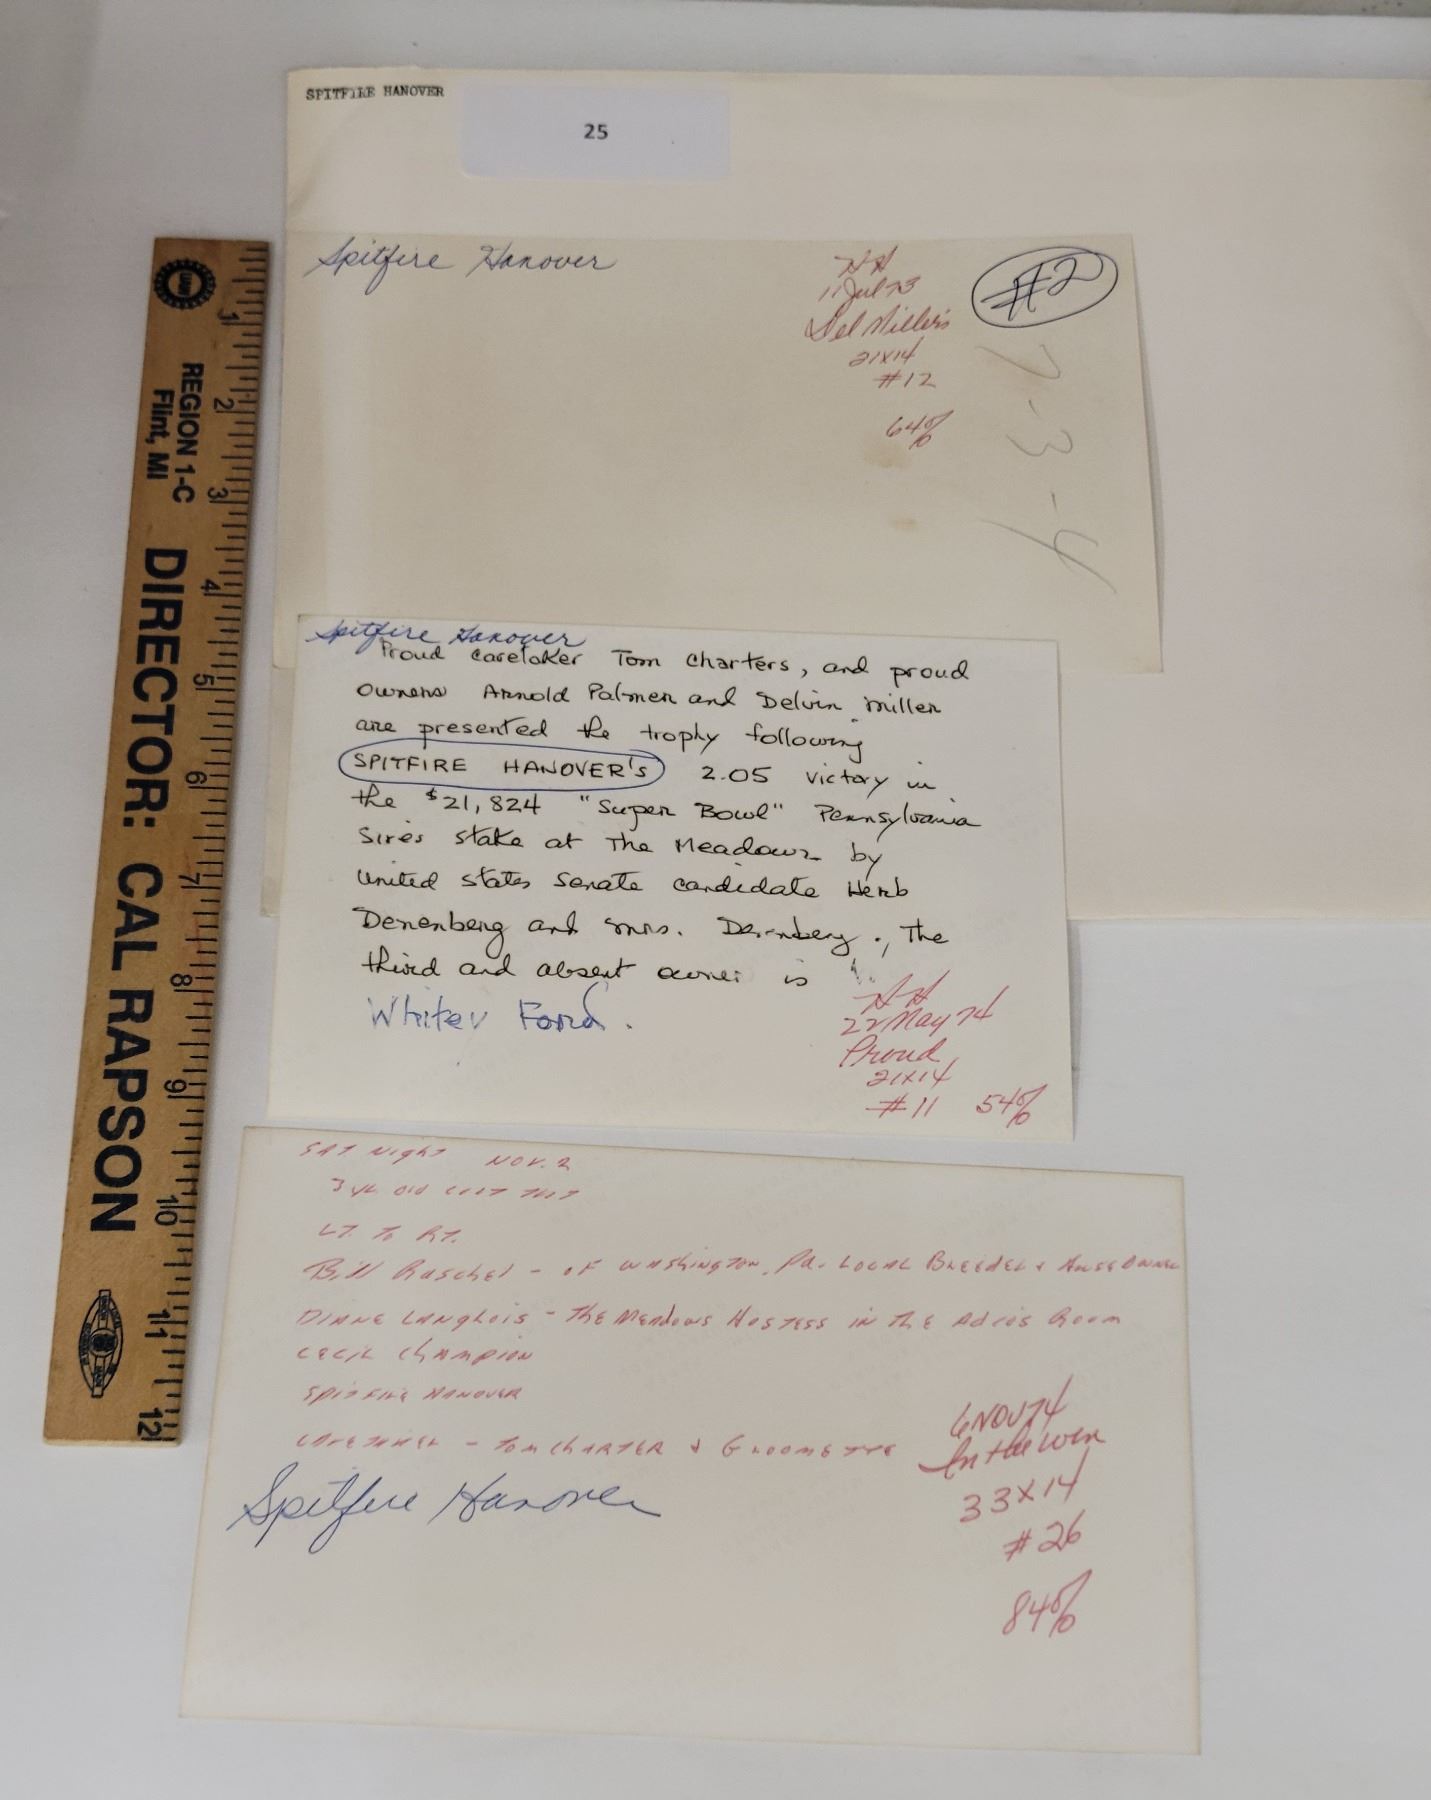 SPITFIRE HANOVER
25
Spitfire Hanover
HH
11 Jul 73
Del Miller's
21x14
#12
64%
#2
7-3-4
REGION 1-C
Flint, MI
DIRECTOR: CAL RAPSON
1
2
3
4
5
6
7
8
9
10
11
12
Spitfire Hanover
Proud caretaker Tom Charters, and proud
owners Arnold Palmer and Delvin Miller
are presented the trophy following
SPITFIRE HANOVER'S 2.05 victory in
the $21,824 "Super Bowl" Pennsylvania
Sires stake at The Meadows by
United States Senate candidate Herb
Denenberg and Mrs. Denenberg., The
third and absent owner is
Whitey Ford.
HH
22 May 74
Proud
21x14
#11 54%
SAT Night NOV. 2
3 yr old colt trot
LT. To RT.
Bill Raschel - of Washington, Pa. Local Breeder & Horse Owner
Diane Langlois - The Meadows Hostess in the Adios Room
Cecil Champion
Spitfire Hanover
Caretaker - Tom Charter & Groomette
Spitfire Hanover
6 NOV 74
In the win
33x14
#26
84%